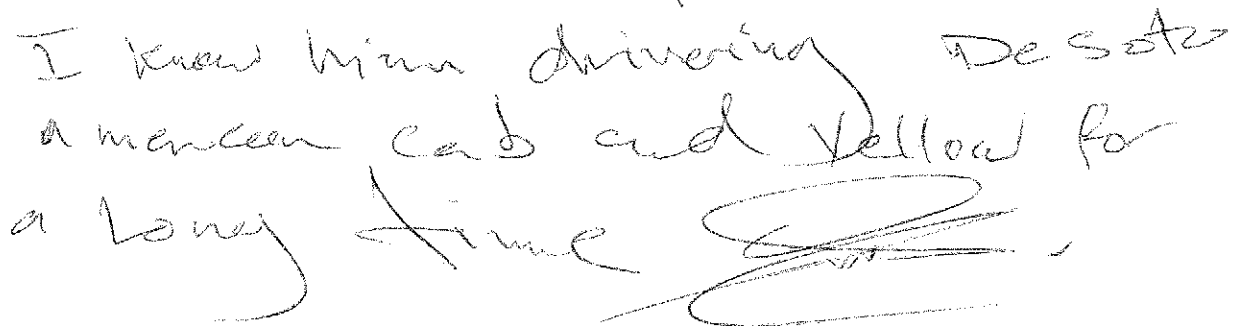 I know him drivering DeSoto
American cab and Yellow for
a Long time